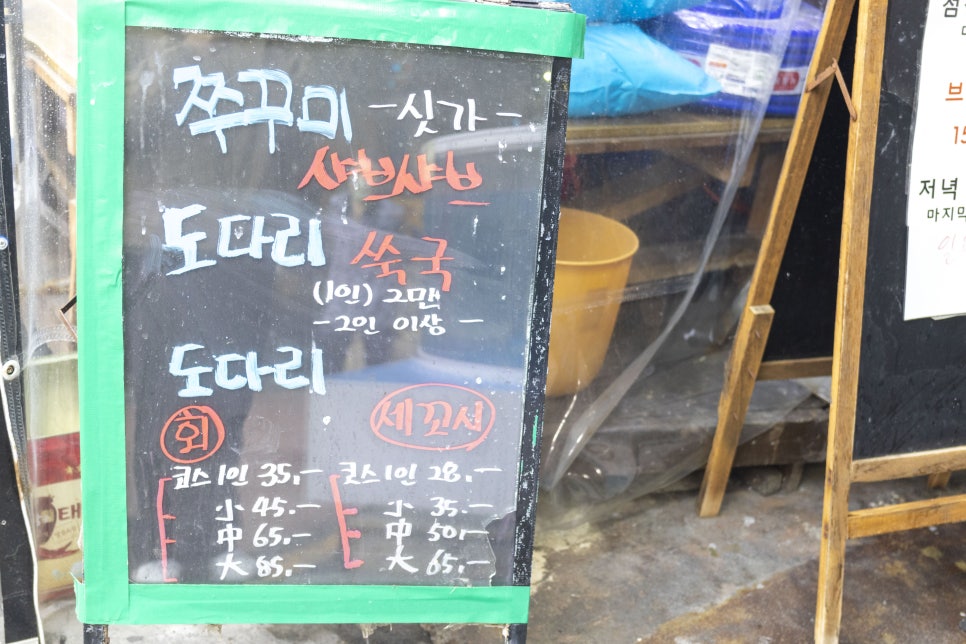 쭈꾸미 -싯가-
샤브샤브
도다리 쑥국
(1인) 2만
-2인 이상-
도다리
회 세꼬시
코스 1인 35.- 콧스 1인 28.-
小 45.- 小 35.-
中 65.- 中 50.-
大 85.- 大 65.-
저녁
마지막